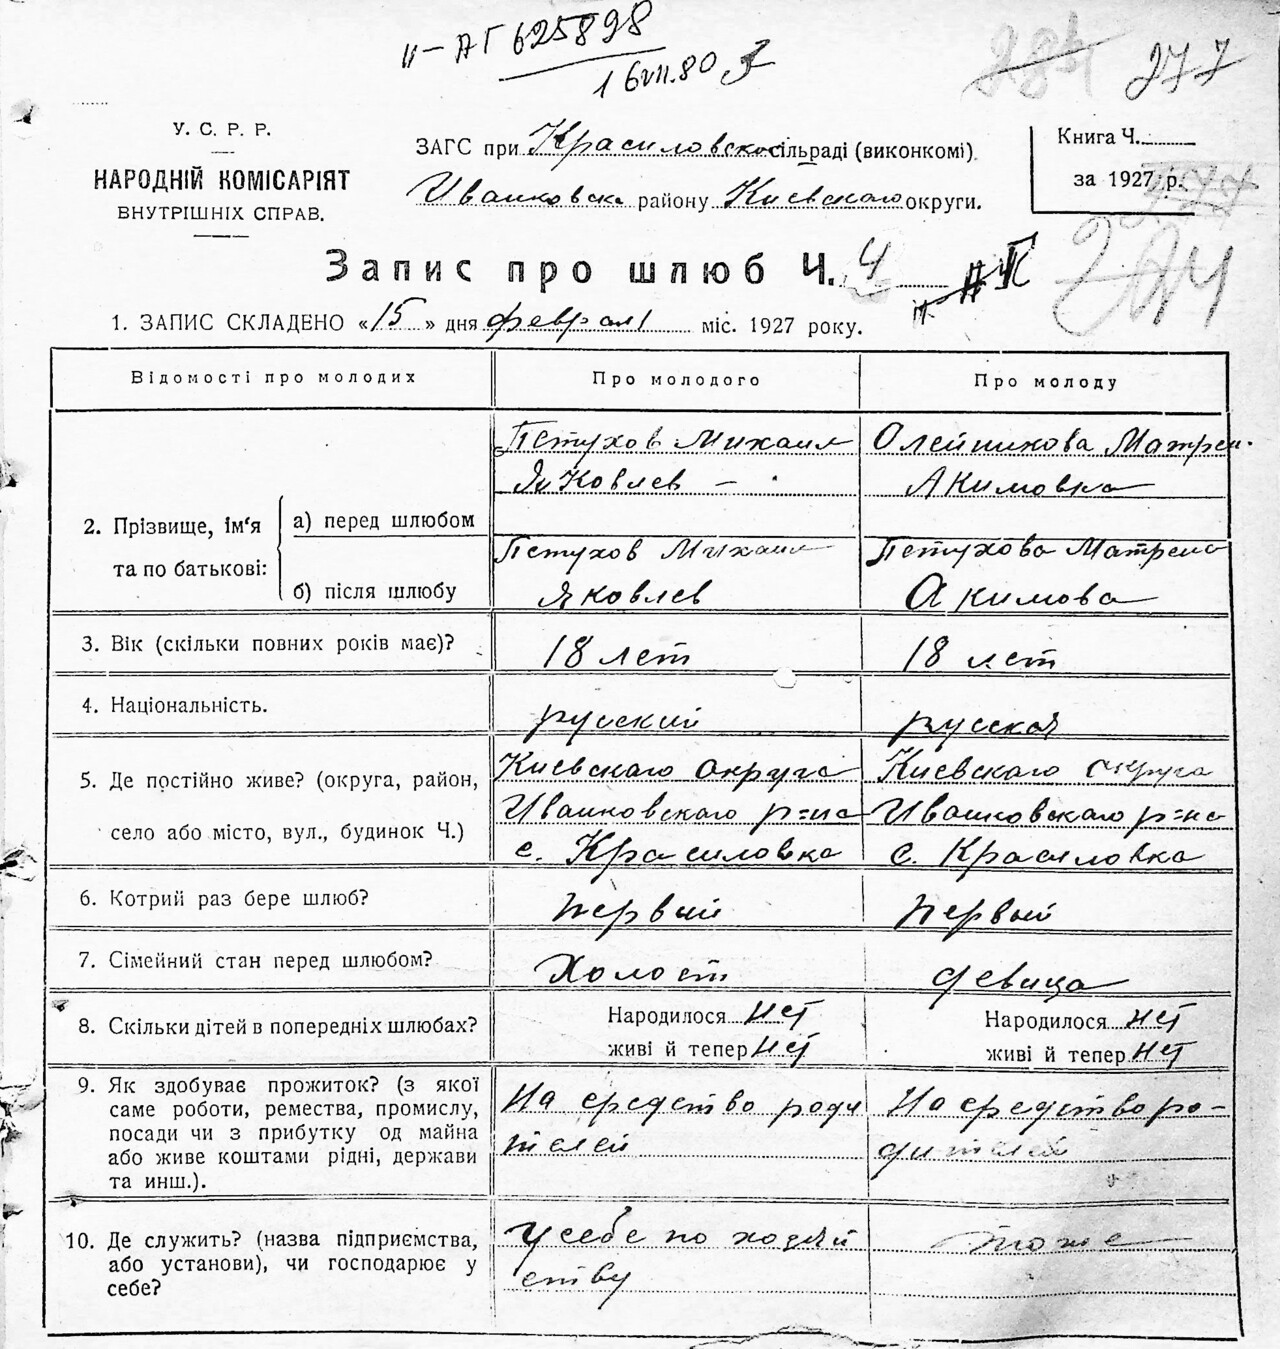 II-АГ 625828
16 VII. 80
277
У. С. Р. Р.
НАРОДНІЙ КОМІСАРІЯТ
ВНУТРІШНІХ СПРАВ.
ЗАГС при Красиловском сільраді (виконкомі).
Иванковск. району Киевского округи.
Книга Ч.
за 1927 р.
Запис про шлюб Ч. 4
1. ЗАПИС СКЛАДЕНО «15» дня феврал міс. 1927 року.
Відомості про молодих
Про молодого
Про молоду
2. Прізвище, ім'я та по батькові:
а) перед шлюбом
Петухов Михаил
Яковлев
Олейникова Матрен.
Акимовна
б) після шлюбу
Петухов Михаил
Яковлев
Петухова Матрена
Акимова
3. Вік (скільки повних років має)?
18 лет
18 лет
4. Національність.
русский
русская
5. Де постійно живе? (округа, район,
село або місто, вул., будинок Ч.)
Киевскаго округа
Иванковскаго р=на
с. Красиловка
Киевскаго округа
Иванковскаго р=на
с. Красиловка
6. Котрий раз бере шлюб?
первый
первый
7. Сімейний стан перед шлюбом?
Холост
девица
8. Скільки дітей в попередніх шлюбах?
Народилося нет
живі й тепер нет
Народилося нет
живі й тепер нет
9. Як здобуває прожиток? (з якої
саме роботи, ремества, промислу,
посади чи з прибутку од майна
або живе коштами рідні, держави
та инш.).
На средство роди
телей
На средство ро-
дителей
10. Де служить? (назва підприємства,
або установи), чи господарює у
себе?
У себе по хозяй
ству
тоже